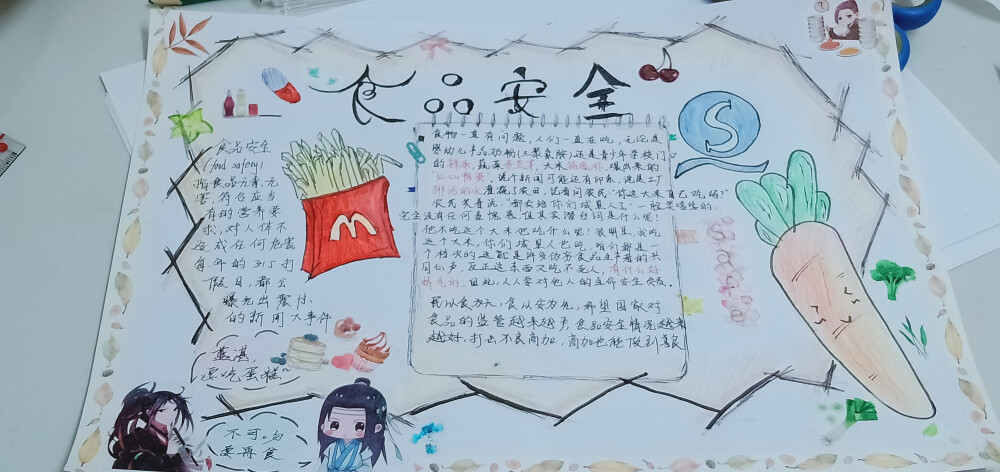 食品安全
食品安全
(food safety)
指食品无毒、无
害，符合应当
有的营养要
求，对人体不
造成任何危害
每年的315打
假日，都会
曝光出震惊
的新闻大事件
食物一直有问题，人们一直在吃，无论是
婴幼儿产品奶粉(三聚氰胺)还是青少年学校门
的辣条，蔬菜
大米
这个新闻可能还有印象，说是工厂
排污的水灌溉了农田，记者问农民"你这大米自己吃吗?"
农民笑着说："都卖给你们城里人了"一脸笑嘻嘻的。
完全没有任何羞愧感，但其实潜台词是什么呢！
他不吃这个大米他吃什么呢！很明显，我吃
这个大米，你们城里人也吃，咱们都是一
个档次的这就是许多伪劣食品生产者的共
同心声，反正这东西又吃不死人，有什么好
娇气的。因此，人人要对他人的生命安全负责。
民以食为天，食以安为先，希望国家对
食品的监管越来越严，食品安全情况越来
越好，打击不良商加，商加也能做到良
S
蓝湛，
要吃蛋糕~
不可。勿
要再食